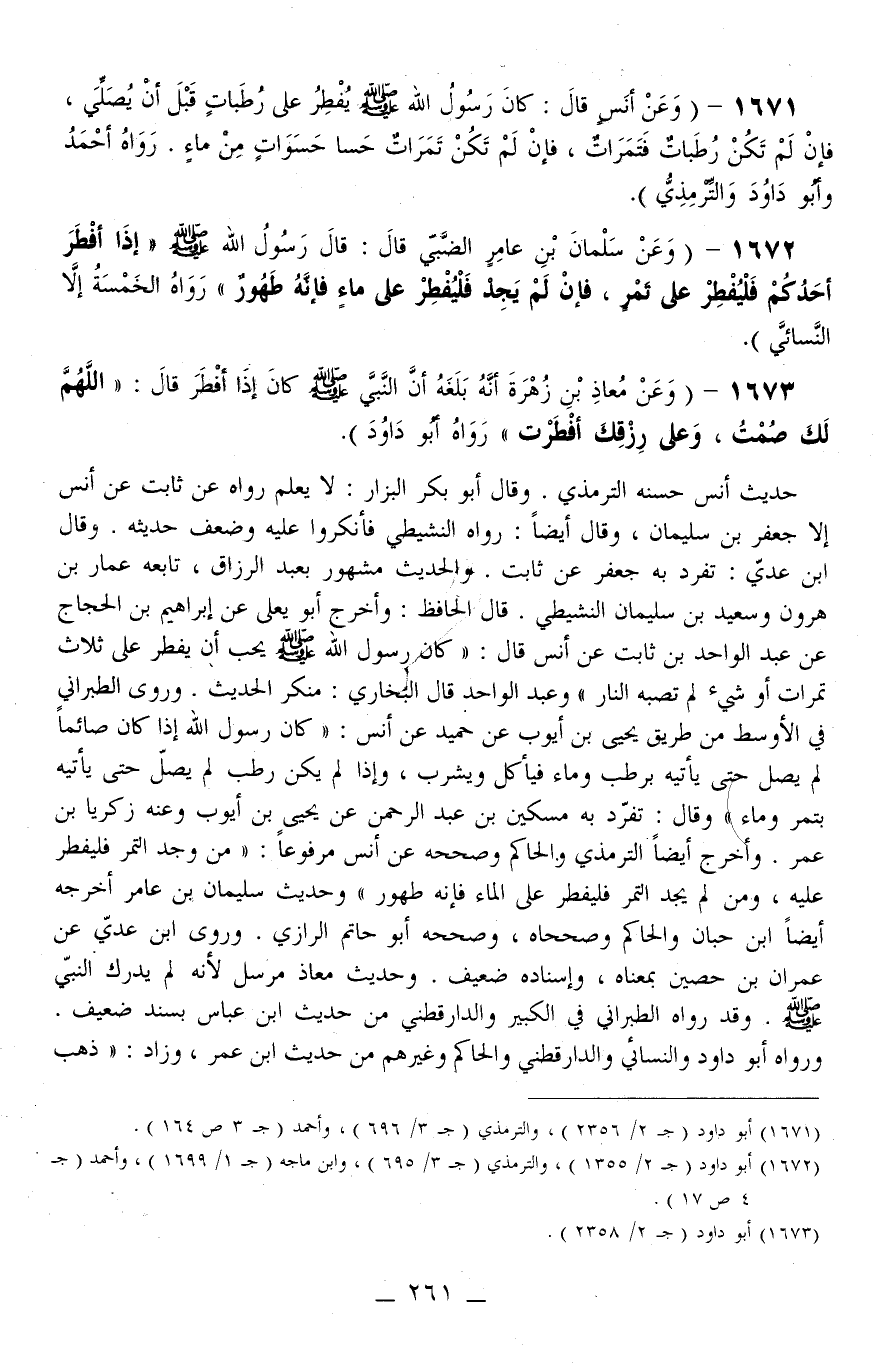 ١٦٧١ - ( وَعَنْ أنَسٍ قالَ : كانَ رَسُولُ الله ﷺ يُفْطِرُ على رُطَباتٍ قَبْلَ أنْ يُصَلِّيَ ،
فإنْ لَمْ تَكُنْ رُطَباتٌ فَتَمَرَاتٌ ، فإنْ لَمْ تَكُنْ تَمَرَاتٌ حَسا حَسَوَاتٍ مِنْ ماءٍ . رَوَاهُ أحْمَدُ
وأبُو دَاوُدَ وَالتِّرْمِذِيُّ ).
١٦٧٢ - ( وَعَنْ سَلْمانَ بْنِ عامِرٍ الضَّبّيّ قالَ : قالَ رَسُولُ الله ﷺ « إذَا أفْطَرَ
أحَدُكُمْ فَلْيُفْطِرْ على تَمْرٍ ، فإنْ لَمْ يَجِدْ فَلْيُفْطِرْ على ماءٍ فإنَّهُ طَهُورٌ » رَوَاهُ الخَمْسَةُ إلَّا
النَّسائيَّ ).
١٦٧٣ - ( وَعَنْ مُعاذِ بْنِ زُهْرَةَ أنَّهُ بَلَغَهُ أنَّ النَّبيَّ ﷺ كانَ إذَا أفْطَرَ قالَ : « اللَّهُمَّ
لَكَ صُمْتُ ، وَعلى رِزْقِكَ أفْطَرْت » رَوَاهُ أبُو دَاوُدَ ).
حديث أنس حسنه الترمذي . وقال أبو بكر البزار : لا يعلم رواه عن ثابت عن أنس
إلا جعفر بن سليمان ، وقال أيضاً : رواه النشيطي فأنكروا عليه وضعف حديثه . وقال
ابن عديّ : تفرد به جعفر عن ثابت . والحديث مشهور بعبد الرزاق ، تابعه عمار بن
هرون وسعيد بن سليمان النشيطي . قال الحافظ : وأخرج أبو يعلى عن إبراهيم بن الحجاج
عن عبد الواحد بن ثابت عن أنس قال : « كان رسول الله ﷺ يحب أن يفطر على ثلاث
تمرات أو شيء لم تصبه النار » وعبد الواحد قال البخاري : منكر الحديث . وروى الطبراني
في الأوسط من طريق يحيى بن أيوب عن حميد عن أنس : « كان رسول الله إذا كان صائماً
لم يصل حتى يأتيه برطب وماء فيأكل ويشرب ، وإذا لم يكن رطب لم يصلّ حتى يأتيه
بتمر وماء » وقال : تفرّد به مسكين بن عبد الرحمن عن يحيى بن أيوب وعنه زكريا بن
عمر . وأخرج أيضاً الترمذي والحاكم وصححه عن أنس مرفوعاً : « من وجد التمر فليفطر
عليه ، ومن لم يجد التمر فليفطر على الماء فإنه طهور » وحديث سليمان بن عامر أخرجه
أيضاً ابن حبان والحاكم وصححاه ، وصححه أبو حاتم الرازي . وروى ابن عديّ عن
عمران بن حصين بمعناه ، وإسناده ضعيف . وحديث معاذ مرسل لأنه لم يدرك النبيّ
ﷺ . وقد رواه الطبراني في الكبير والدارقطني من حديث ابن عباس بسند ضعيف .
ورواه أبو داود والنسائي والدارقطني والحاكم وغيرهم من حديث ابن عمر ، وزاد : « ذهب
(١٦٧١) أبو داود ( جـ ٢/ ٢٣٥٦ ) ، والترمذي ( جـ ٣/ ٦٩٦ ) ، وأحمد ( جـ ٣ ص ١٦٤ ) .
(١٦٧٢) أبو داود ( جـ ٢/ ١٣٥٥ ) ، والترمذي ( جـ ٣/ ٦٩٥ ) ، وابن ماجه ( جـ ١/ ١٦٩٩ ) ، وأحمد ( جـ
٤ ص ١٧ ) .
(١٦٧٣) أبو داود ( جـ ٢/ ٢٣٥٨ ) .
ــ ٢٦١ ــ